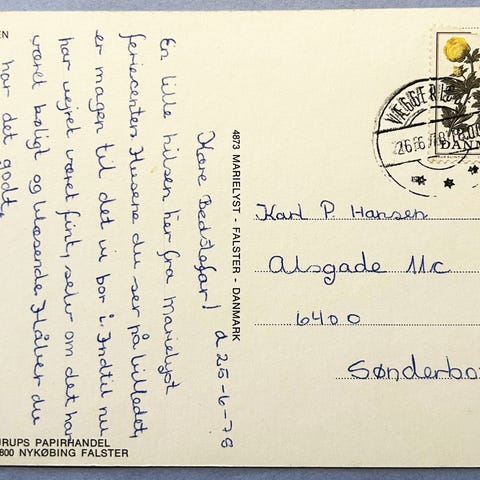 EN
Kære Bedstefar! d 25-6-78
En lille hilsen her fra Marielyst
feriecenter. Husene du ser på billedet,
er magen til det vi bor i. Indtil nu
har vejret været fint, selv om det har
været køligt og blæsende. Håber du
har det godt.
4873 MARIELYST - FALSTER - DANMARK
DANM
26.6.78
Karl P. Hansen
Alsgade 11c
6400
Sønderbo
URUPS PAPIRHANDEL
800 NYKØBING FALSTER